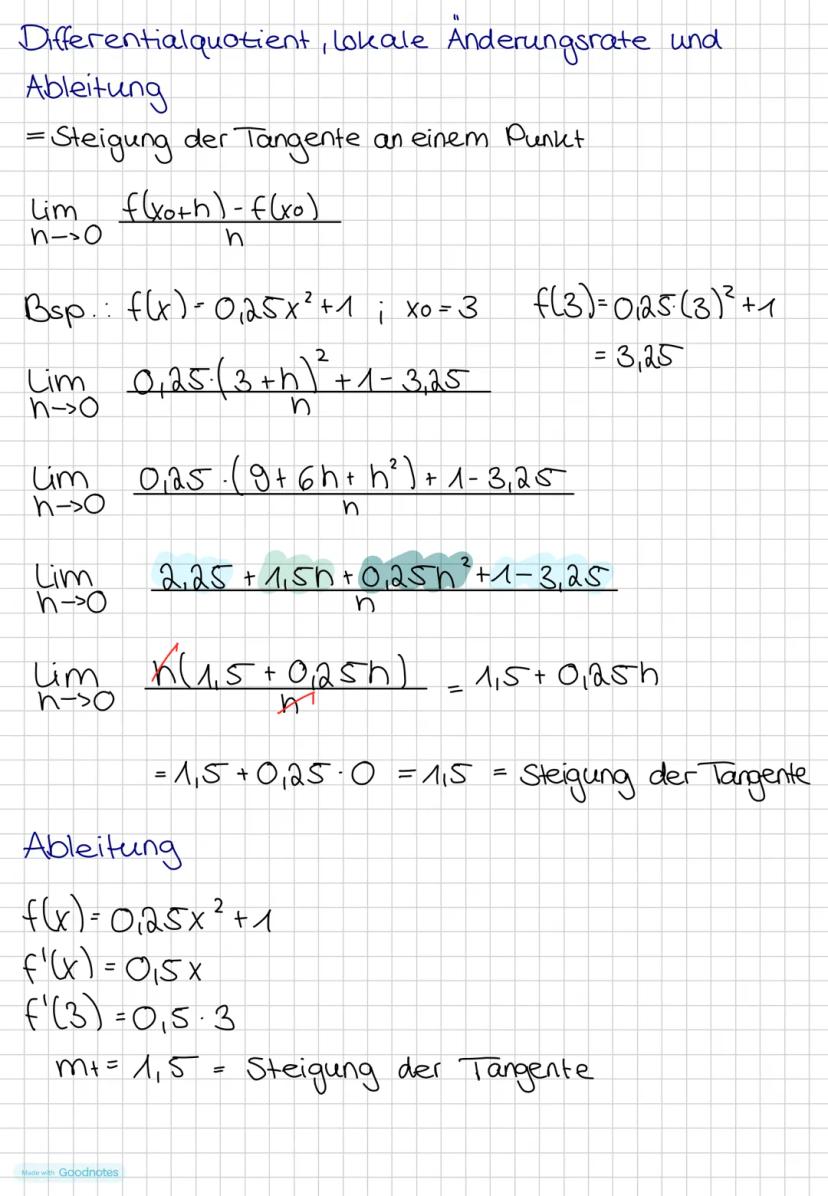 Differentialquotient, lokale Änderungsrate und
Ableitung
= Steigung der Tangente an einem Punkt
lim h->0 f(x0+h) - f(x0) / h
Bsp.: f(x) = 0,25x² + 1 ; x0 = 3 f(3) = 0,25·(3)² + 1
= 3,25
lim h->0 0,25·(3+h)² + 1 - 3,25 / h
lim h->0 0,25·(9 + 6h + h²) + 1 - 3,25 / h
lim h->0 2,25 + 1,5h + 0,25h² + 1 - 3,25 / h
lim h->0 h(1,5 + 0,25h) / h = 1,5 + 0,25h
= 1,5 + 0,25 · 0 = 1,5 = Steigung der Tangente
Ableitung
f(x) = 0,25x² + 1
f'(x) = 0,5x
f'(3) = 0,5 · 3
mt = 1,5 = Steigung der Tangente
Made with Goodnotes